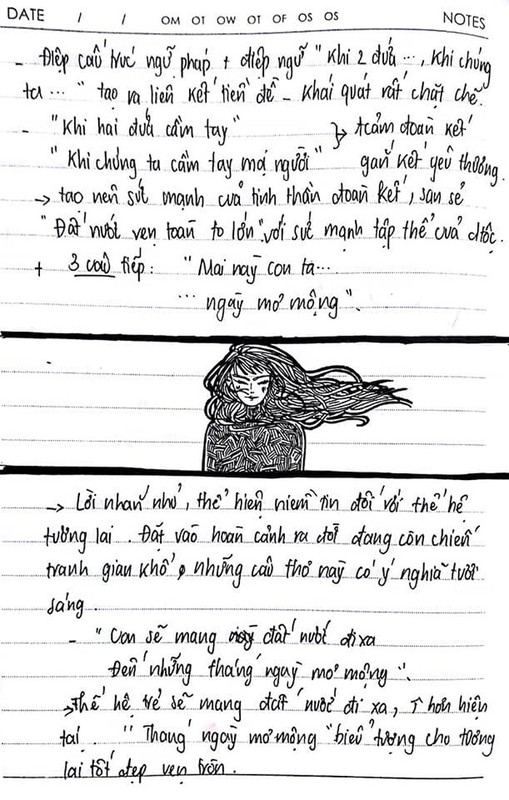 DATE / / OM OT OW OT OF OS OS NOTES
- Điệp cấu trúc ngữ pháp + điệp ngữ " Khi 2 đứa ..., Khi chúng
ta ... " tạo ra liên kết tiền đề - khái quát rất chặt chẽ.
- "Khi hai đứa cầm tay" } tcảm đoàn kết
"Khi chúng ta cầm tay mọi người" gắn kết yêu thương.
→ tạo nên sức mạnh của tinh thần đoàn kết, san sẻ
"Đất nước vẹn toàn to lớn" với sức mạnh tập thể của dtộc.
+ 3 câu tiếp : "Mai này con ta...
... ngày mơ mộng".
→ Lời nhắn nhủ, thể hiện niềm tin đối với thế hệ
tương lai. Đặt vào hoàn cảnh ra đời đang còn chiến
tranh gian khổ, những câu thơ này có ý nghĩa tươi
sáng.
- " Con sẽ mang đất nước đi xa
Đến những tháng ngày mơ mộng ".
→ thế hệ trẻ sẽ mang đất nước đi xa, ↑ hơn hiện
tại. " Tháng ngày mơ mộng " biểu tượng cho tương
lai tốt đẹp vẹn tròn.